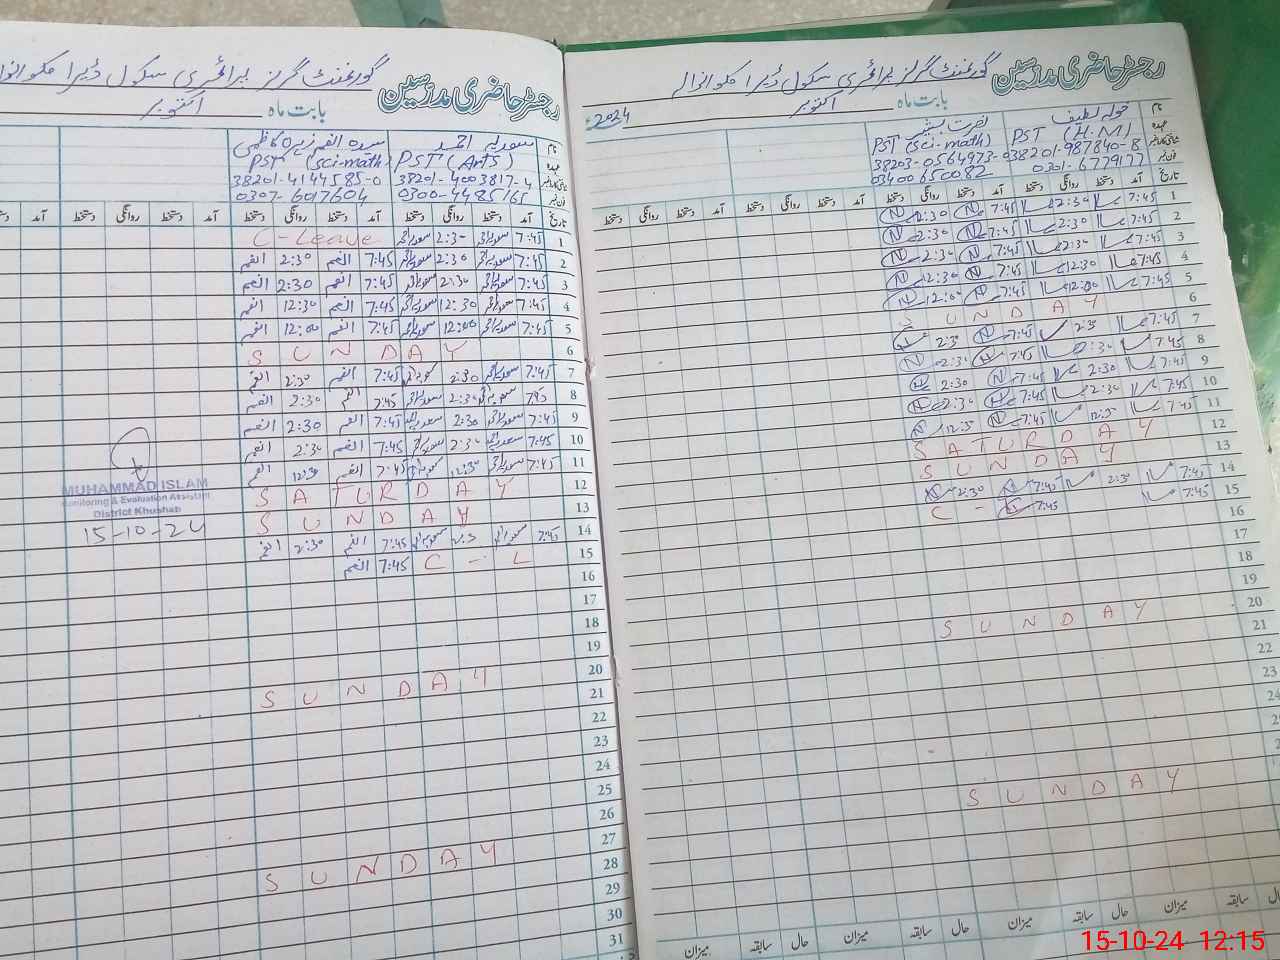 رجسٹر حاضری مدرسین گورنمنٹ گرلز پرائمری سکول ڈیرا مکوانوالہ
بابت ماہ اکتوبر 2024ء
نام خولہ لطیف نصرت بشیر
عہدہ PST (H.M) PST (sci-math)
شناختی کارڈ نمبر 38201-987840-8 38203-0564973-0
فون نمبر 0301-6779177 03400650082
تاریخ آمد دستخط روانگی دستخط آمد دستخط روانگی دستخط آمد دستخط روانگی دستخط آمد دستخط روانگی دستخط
1 7:45 2:30 7:45 2:30
2 7:45 2:30 7:45 2:30
3 7:45 2:30 7:45 2:30
4 7:45 12:30 7:45 12:30
5 7:45 12:00 7:45 12:00
6 SUNDAY
7 7:45 2:30 7:45 2:30
8 7:45 2:30 7:45 2:30
9 7:45 2:30 7:45 2:30
10 7:45 2:30 7:45 2:30
11 7:45 12:30 7:45 12:30
12 SATURDAY
13 SUNDAY
14 7:45 2:30 7:45 2:30
15 7:45 7:45 C -
16
17
18
19
20 SUNDAY
21
22
23
24
SUNDAY
میزان حال سابقہ میزان حال سابقہ میزان حال سابقہ میزان
رجسٹر حاضری مدرسین گورنمنٹ گرلز پرائمری سکول ڈیرا مکوانوا
بابت ماہ اکتوبر
نام سعدیہ احمد سیدہ انعم زہرہ کاظمی
عہدہ PST (Arts) PST (sci-math)
شناختی کارڈ نمبر 38201-4003817-4 38201-4144585-0
فون نمبر 0300-4485165 0307-6017604
تاریخ آمد دستخط روانگی دستخط آمد دستخط روانگی دستخط آمد دستخط روانگی دستخط آمد
1 7:45 2:30 C-Leave
2 7:45 2:30 7:45 انعم 2:30 انعم
3 7:45 2:30 7:45 انعم 2:30 انعم
4 7:45 12:30 7:45 انعم 12:30 انعم
5 7:45 12:00 7:45 انعم 12:00 انعم
6 SUNDAY
7 7:45 2:30 7:45 انعم 2:30 انعم
8 7:45 2:30 7:45 انعم 2:30 انعم
9 7:45 2:30 7:45 انعم 2:30 انعم
10 7:45 2:30 7:45 انعم 2:30 انعم
11 7:45 12:30 7:45 انعم 12:30 انعم
12 SATURDAY
13 SUNDAY
14 7:45 2:30 7:45 انعم 2:30 انعم
15 C - L 7:45 انعم
16
17
18
19
20 SUNDAY
21
22
23
24
25
26
27 SUNDAY
28
29
30
31
MUHAMMAD ISLAM
Monitoring & Evaluation Assistant
District Khushab
15-10-24
15-10-24 12:15